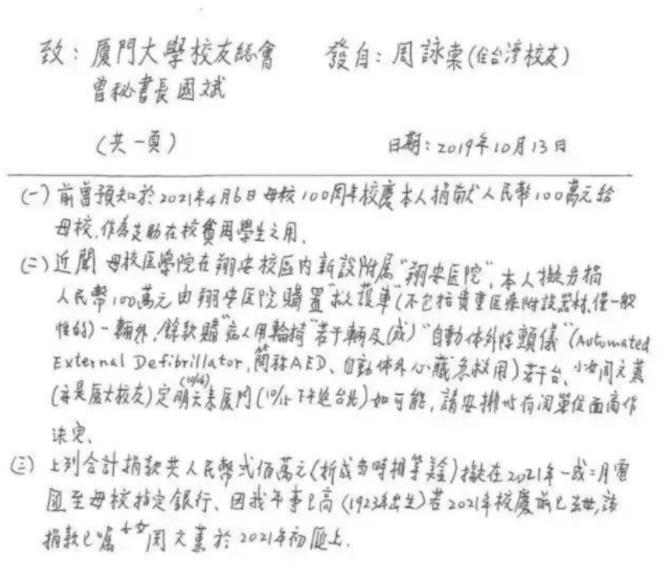 致：廈門大學校友總會 發自：周詠棠(住台湾校友)
曾秘書長國斌
(共一頁) 日期：2019年10月13日
(一) 前曾預知於2021年4月6日母校100周年校慶本人捐献人民幣100萬元給
母校,作為支助在校貧困學生之用.
(二) 近聞 母校医學院在翔安校區内新設附属"翔安医院",本人擬另捐
人民幣100萬元由翔安医院購置"救護車"(不包括貴重医療附設器材,僅一般
性的)一輛外,餘款購"病人用輪椅"若干輛及(或)"自動体外除顫儀"(Automated
External Defibrillator,簡称AED、自動体外心臟急救用)若干台、小女周文薰
(亦是厦大校友)定明天(10/14)來厦門(10/15下午返台北)如可能,請安排以有関單位面商作
決定、
(三) 上列合計捐款共人民幣弍佰萬元(折成當時相等美金)擬在2021年一或二月電
匯至母校指定銀行、因我年事已高(1923年出生)若2021年校慶前已去世,該
捐款已囑小女周文薰於2021年初匯上.